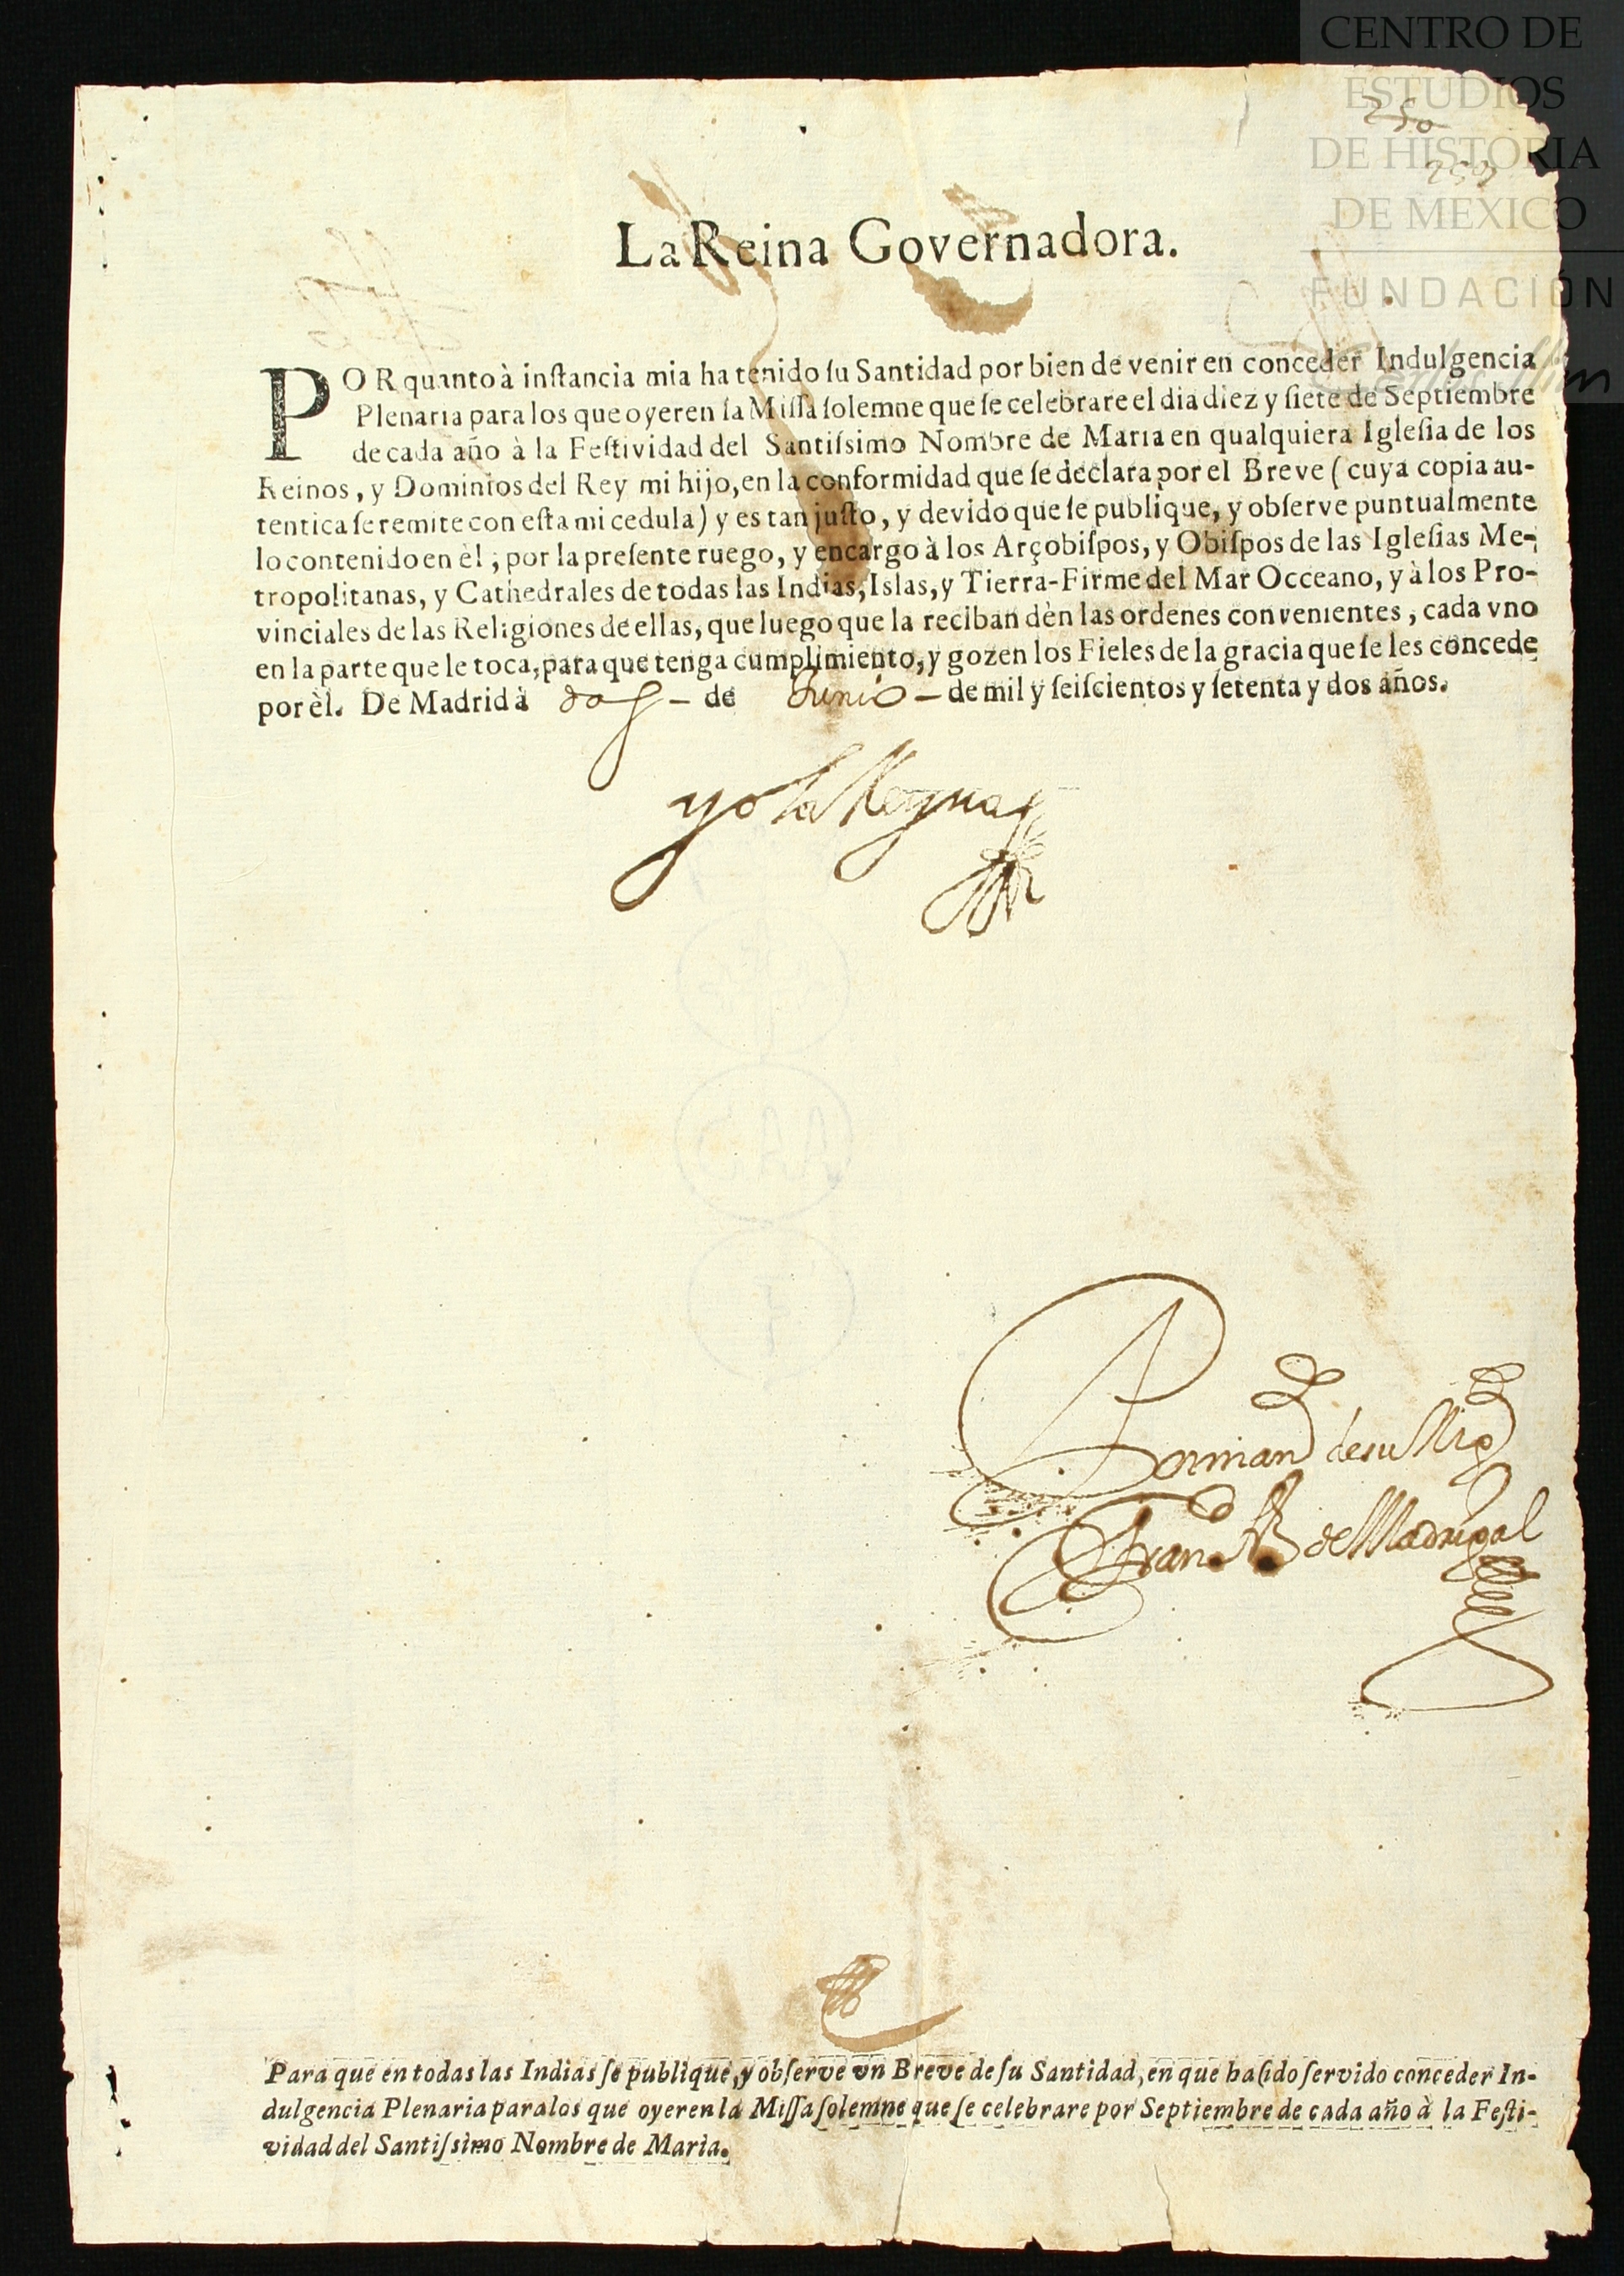 CENTRO DE
ESTUDIOS
DE HISTORIA
DE MEXICO
FUNDACIÓN
250
250
La Reina Governadora.
POR quanto à instancia mia ha tenido su Santidad por bien de venir en conceder Indulgencia
Plenaria para los que oyeren la Missa solemne que se celebrare el dia diez y siete de Septiembre
de cada año à la Festividad del Santissimo Nombre de Maria en qualquiera Iglesia de los
Reinos, y Dominios del Rey mi hijo, en la conformidad que se declara por el Breve (cuya copia au-
tentica se remite con esta mi cedula) y es tan justo, y devido que se publique, y observe puntualmente
lo contenido en èl; por la presente ruego, y encargo à los Arçobispos, y Obispos de las Iglesias Me-
tropolitanas, y Cathedrales de todas las Indias, Islas, y Tierra-Firme del Mar Occeano, y à los Pro-
vinciales de las Religiones de ellas, que luego que la reciban dèn las ordenes convenientes, cada vno
en la parte que le toca, para que tenga cumplimiento, y gozen los Fieles de la gracia que se les concede
por èl. De Madrid à dos - de Junio - de mil y seiscientos y setenta y dos años.
yo la Reyna
CAA
Por man.do de su Mag.d
Fran.co de Madrigal
Para que en todas las Indias se publique, y observe vn Breve de su Santidad, en que ha sido servido conceder In-
dulgencia Plenaria para los que oyeren la Missa solemne que se celebrare por Septiembre de cada año à la Festi-
vidad del Santissimo Nombre de Maria.